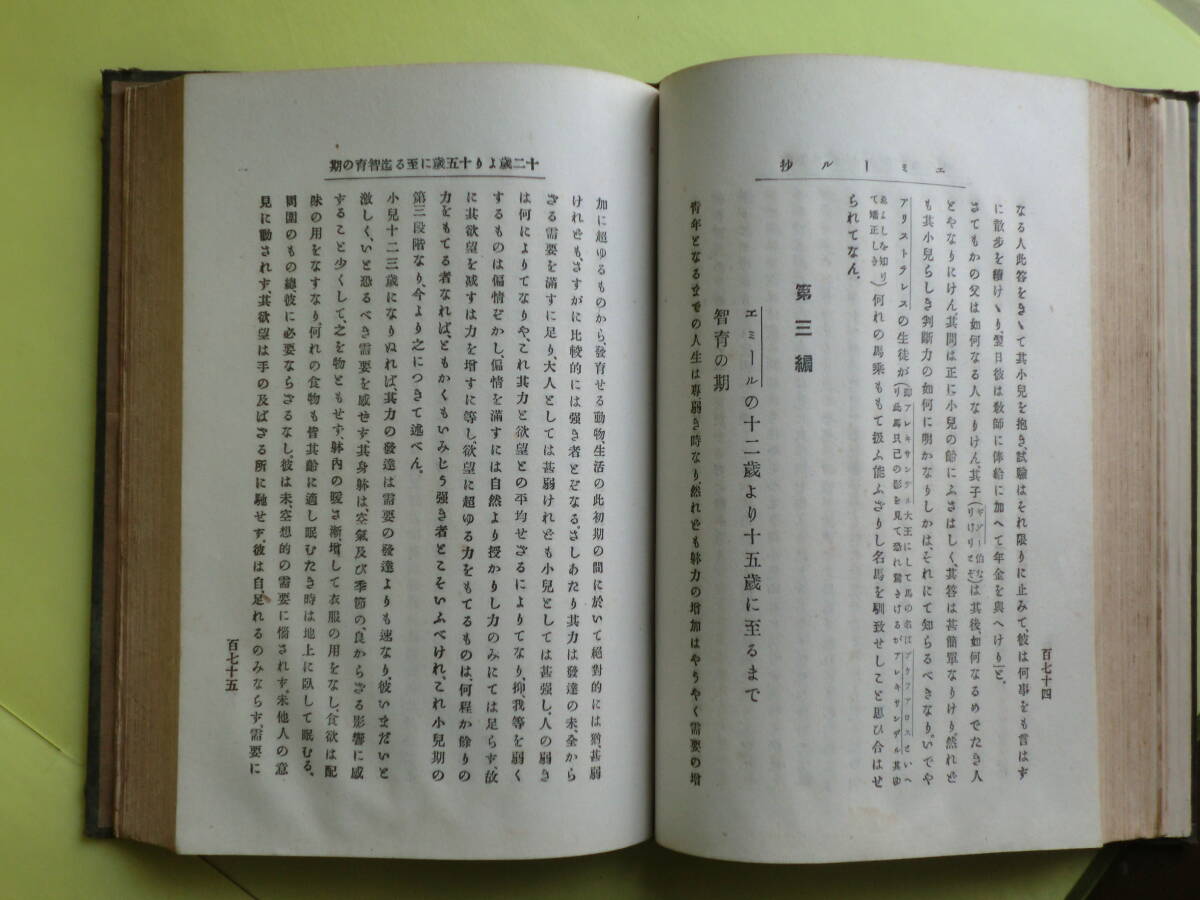 エミール抄
なる人此答をきゝて其小兒を抱き試驗はそれ限りに止みて、彼は何事をも言はず
に散歩を續けゝり、翌日彼は敎師に俸給に加へて年金を與へけり」と、
さてもかの父は如何なる人なりけん、其子は其後如何なるめでたき人
とやなりにけん、其問は正に小兒の齡にふさはしく、其答は甚簡單なりけり、然れども
も其小兒らしき判斷力の如何に明かなりしかは、それにて知らるべきなり、いでや
アリストテレスの生徒が(即アレキサンデル大王にして馬の名はブウフアロスといへり此馬只己の影を見て恐れ驚きけるがアレキサンデル其ゆ
ゑよしを知りて矯正しき)何れの馬乘ももて扱ふ能ふざりし名馬を馴致せしこと思ひ合はせ
られてなん。
第三編
エミールの十二歲より十五歲に至るまで
智育の期
靑年となるまでの人生は專弱き時なり、然れども躰力の增加はやうやく需要の增
百七十四
十二歲より十五歲に至る迄智育の期
加に超ゆるものから、發育せる動物、生活の此初期の間に於いて絕對的には猶、甚弱
けれども、さすがに比較的には强き者とぞなる。さしあたり其力は發達の未、全から
ざる需要を滿すに足り、大人としては甚弱けれども小兒としては甚强し、人の弱き
は何によりてなりや、これ其力と欲望との平均せざるによりてなり、抑、我等を弱く
するものは偏情ぞかし、偏情を滿すには自然より授かりし力のみにては足らず、故
に其欲望を減ずは力を增すに等し、欲望に超ゆる力をもてるものは、何程か餘りの
力をもてる者なれば、ともかくもいみじう强き者とこそいふべけれ、これ小兒期の
第三段階なり、今より之につきて述べん。
小兒十二三歲になりぬれば、其力の發達は需要の發達よりも速なり、彼いまだいと
激しく、いと恐るべき需要を感せず、其身躰は、空氣及び季節の、良からざる影響に感
ずること少くして、之を物ともせず、躰內の暖さ漸、增して衣服の用をなし、食欲は配
味の用をなすなり、何れの食物も皆其齡に適し眠むたき時は地上に臥して眠むる、
周圍のもの總、彼に必要ならざるなし、彼は未、空想的の需要に惱されず、未他人の意
見に動されず、其欲望は手の及ばざる所に馳せず、彼は自、足れるのみならず、需要に
百七十五